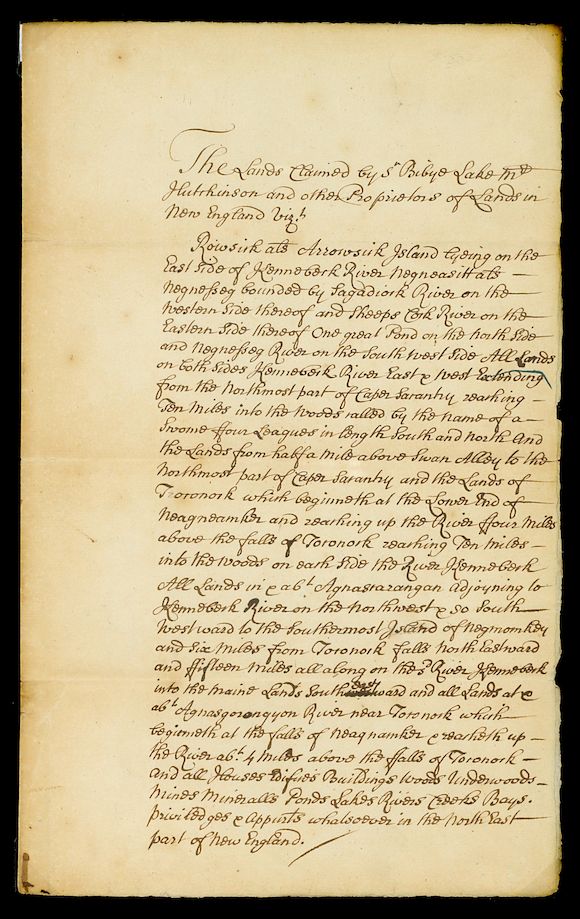 The Lands Claimed by Sr Bibye Lake Mrs
Hutchinson and other Proprietors of Lands in
New England vizt
Rowsick als Arrowsick Island lyeing on the
East Side of Kennebeck River Negneasitt als
Negnesseg bounded by Sagadiock River on the
Western Side thereof and Sheeps Cock River on the
Eastern Side thereof One great Pond on the North Side
and Negnesseg River on the South West Side All Lands
on both Sides Kennebeck River East & West Extending
from the Northmost part of Caper Sarantry reaching
Ten Miles into the Woods called by the name of a
Swome ffour Leagues in length South and North And
the Lands from half a Mile above Swan Alley to the
Northmost part of Caper Sarantry and the Lands of
Troronock which beginneth at the Lower End of
Neagneamker and reaching up the River ffour Miles
above the falls of Toronock reaching Ten Miles
into the Woods on each Side the River Kennebeck
All Lands in & abt Agnascarangan adjoyning to
Kennebeck River on the Northwest & so South
Westward to the Southermost Island of Negmomkey
and Six Miles from Toronock falls North Eastward
and ffifteen Miles all along on the sd River Kennebeck
into the maine Lands South east ward and all Lands at &
abt Agnasgorongyon River near Toronock which
beginneth at the falls of Neagnamker & reacheth up
the River abt 4 Miles above the ffalls of Toronock
and all Houses Edifies Buildings Woods Underwoods
Mines Mineralls Ponds Lakes Rivers Creeks Bays.
priviledges & Appurts whatsoever in the North East
part of New England.